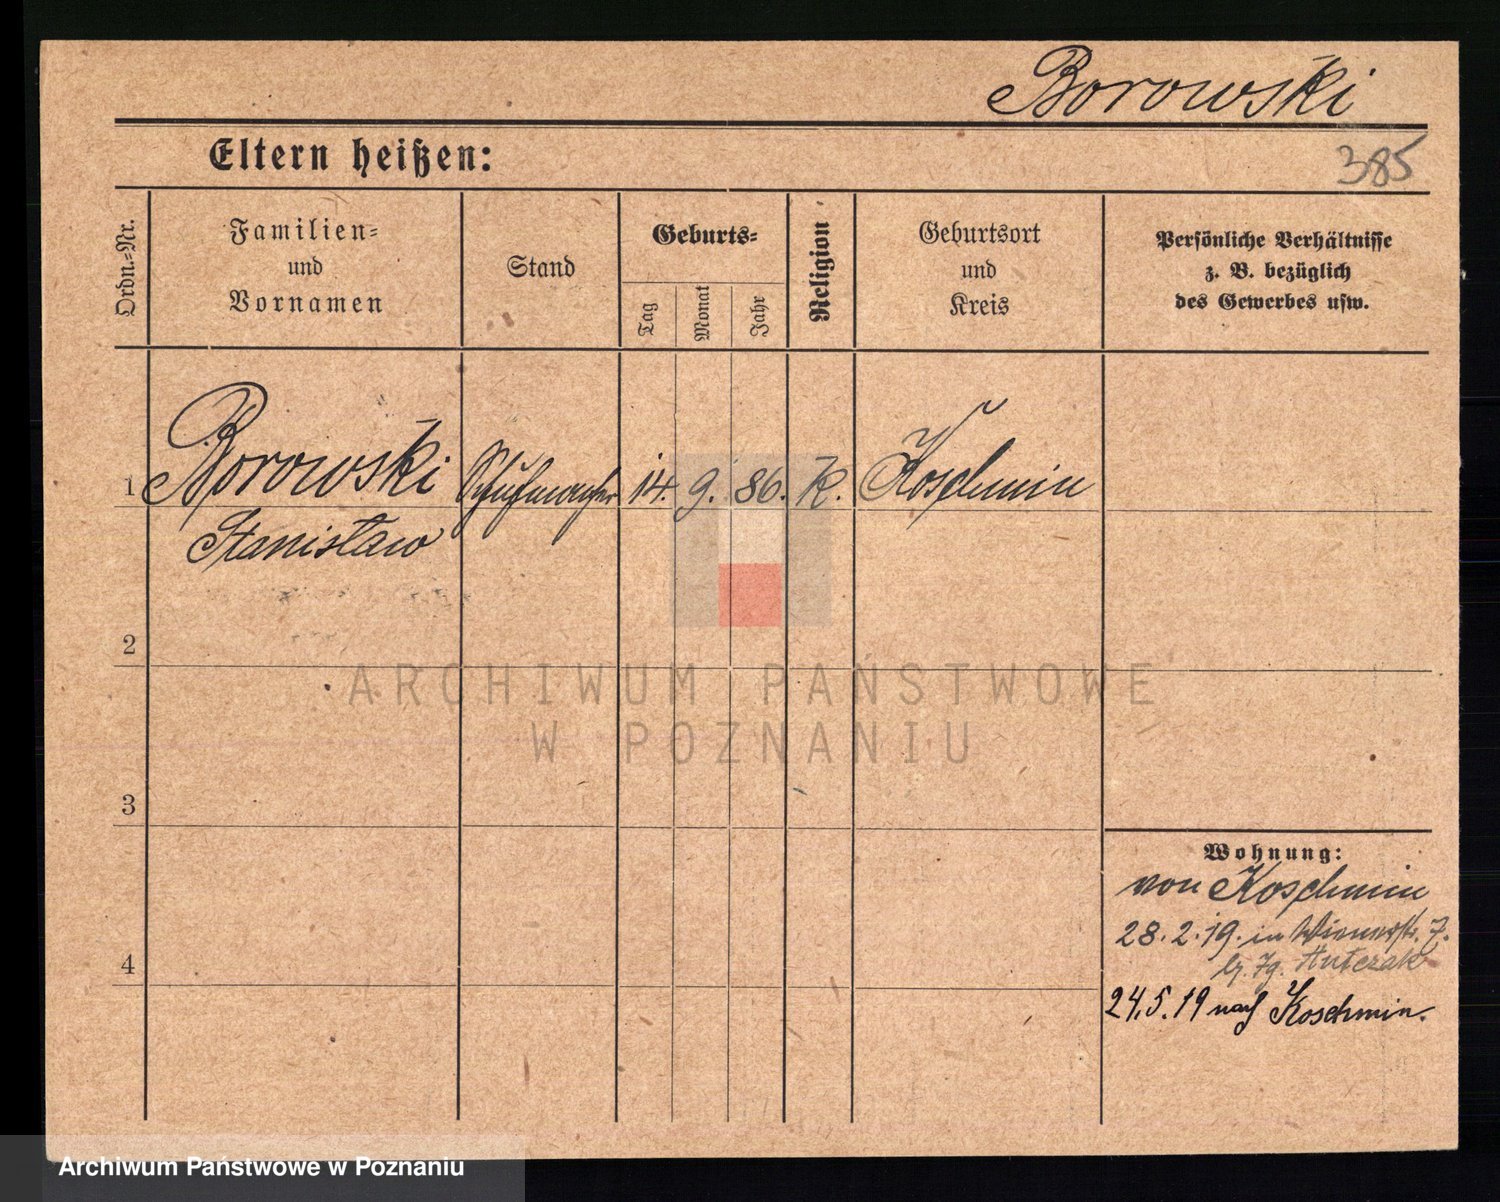 Borowski
Eltern heißen:
385
Ordn.-Nr.
Familien-
und
Vornamen
Stand
Geburts-
Tag
Monat
Jahr
Religion
Geburtsort
und
Kreis
Persönliche Verhältnisse
z. B. bezüglich
des Gewerbes usw.
1 Borowski Schuhmacher 14. 9. 86. K. Koschmin
Stanisław
2
3
4
Wohnung:
von Koschmin
28. 2. 19. in Wienerstr. 7.
b. Antczak
24. 5. 19 nach Koschmin.
ARCHIWUM PAŃSTWOWE
W POZNANIU
Archiwum Państwowe w Poznaniu